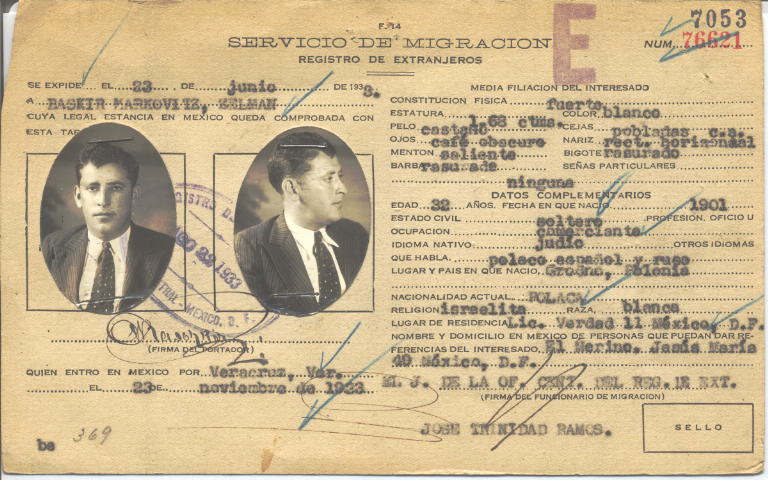 F. 14
E
7053
SERVICIO DE MIGRACION
NUM. 76621
REGISTRO DE EXTRANJEROS
SE EXPIDE EL 23 DE junio DE 1933.
A BASKIR MARKOVITZ, ZELMAN
CUYA LEGAL ESTANCIA EN MEXICO QUEDA COMPROBADA CON
ESTA
MEXICO, D. F.
1933
(FIRMA DEL PORTADOR)
QUIEN ENTRO EN MEXICO POR Veracruz, Ver.
EL 23 de noviembre de 1923
be 369
MEDIA FILIACION DEL INTERESADO
CONSTITUCION FISICA fuerte
ESTATURA 1.68 ctms. COLOR blanco
PELO castaño CEJAS pobladas c.a.
OJOS café obscuro NARIZ rect. horizontal
MENTON saliente BIGOTE rasurado
BARBA rasurada SEÑAS PARTICULARES
ninguna
DATOS COMPLEMENTARIOS
EDAD 32 AÑOS. FECHA EN QUE NACIO 1901
ESTADO CIVIL soltero PROFESION, OFICIO U
OCUPACION comerciante
IDIOMA NATIVO judio OTROS IDIOMAS
QUE HABLA. polaco español y ruso
LUGAR Y PAIS EN QUE NACIO Grodno, Polonia
NACIONALIDAD ACTUAL POLACA
RELIGION israelita RAZA, blanca
LUGAR DE RESIDENCIA Lic. Verdad 11 México, D.F.
NOMBRE Y DOMICILIO EN MEXICO DE PERSONAS QUE PUEDAN DAR RE-
FERENCIAS DEL INTERESADO El Merino. Jesús María
45 México, D.F.
EL J. DE LA OF. CENT. DEL REG. DE EXT.
(FIRMA DEL FUNCIONARIO DE MIGRACION)
JOSE TRINIDAD RAMOS.
SELLO